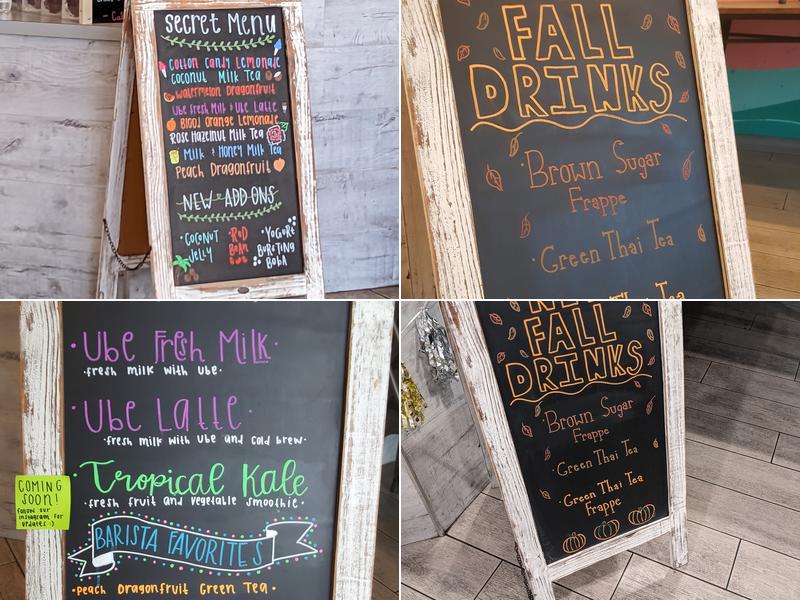 Secret Menu
Cotton Candy Lemonade
Coconut Milk Tea
Watermelon Dragonfruit
Ube Fresh Milk + Ube Latte
Blood Orange Lemonade
Rose Hazelnut Milk Tea
Milk + Honey Milk Tea
Peach Dragonfruit
NEW ADD-ONS
· Coconut Jelly
· Red Bean
· Yogurt Bursting Boba
FALL
DRINKS
· Brown Sugar
Frappe
· Green Thai Tea
Thai Tea
· Ube Fresh Milk ·
· fresh milk with ube ·
· Ube Latte ·
· fresh milk with ube and cold brew ·
· Tropical Kale
· fresh fruit and vegetable smoothie ·
COMING
SOON!
follow our
instagram for
updates :)
BARISTA FAVORITES
· Peach Dragonfruit Green Tea ·
NEW
FALL
DRINKS
· Brown Sugar
Frappe
· Green Thai Tea
· Green Thai Tea
Frappe